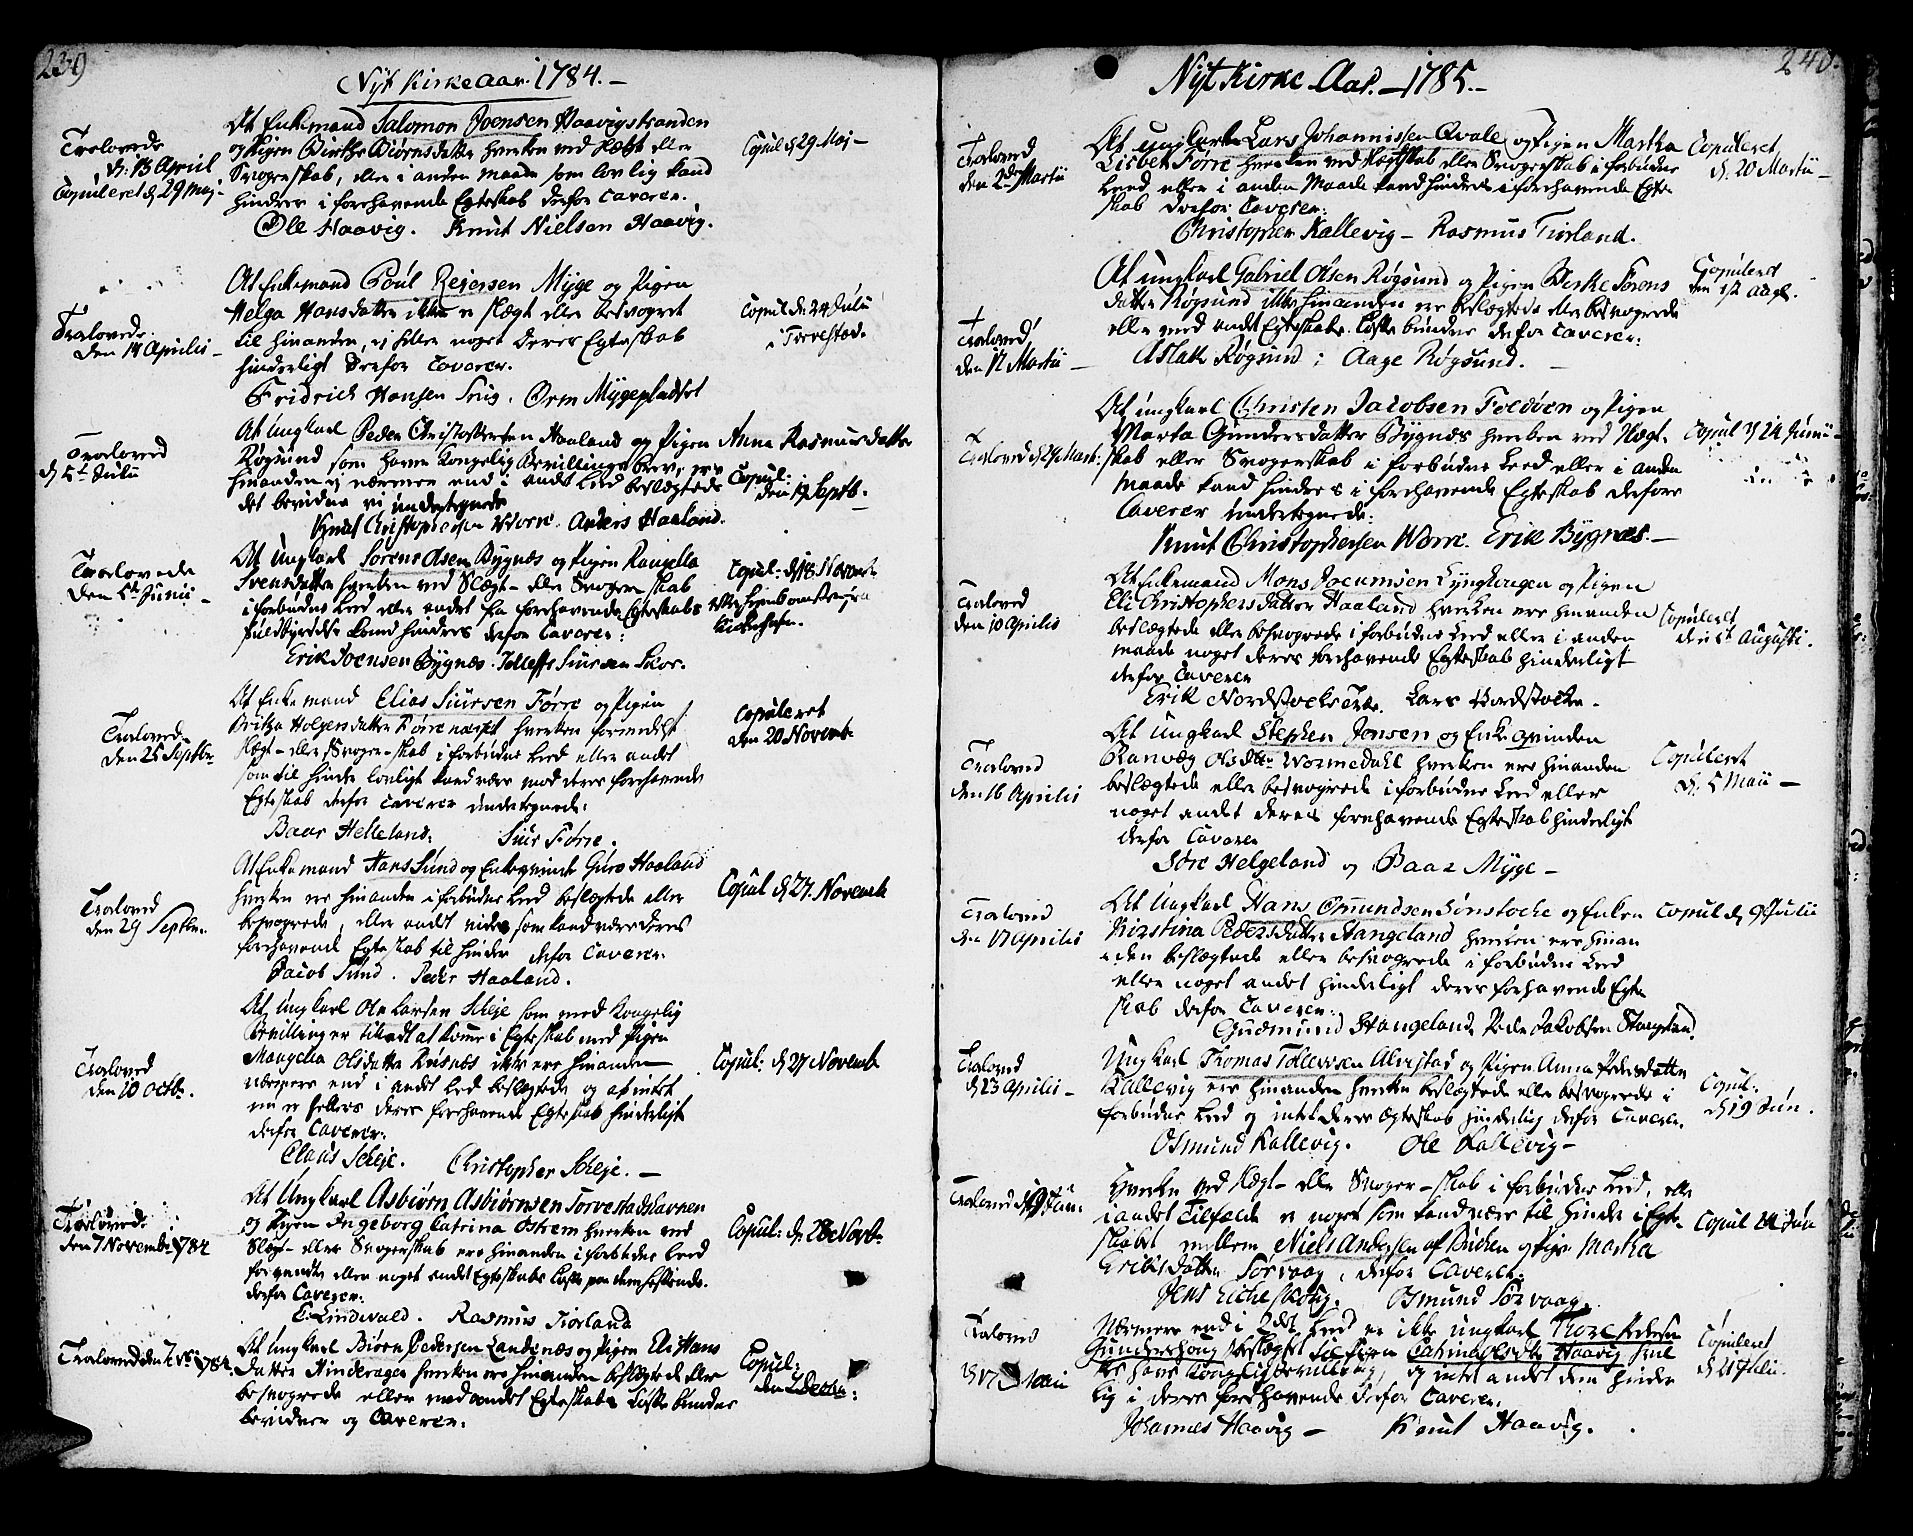 239
Nyt Kirke Aar. 1784. –
Trolovede
d. 13 April
Copuleret d. 29 Maj.
At Enkemand Salomon Joensen Haavigstranden
og Pigen Birthe Biørnsdatter hverken ved Slægt eller
Svogerskab, eller i anden maade som lovlig kand
hindres i forehavende Egteskab derfor Caverer.
Ole Haavig. Knut Nielsen Haavig.
Copul d 29 Maj –
Trolovede
den 14 Aprilis –
At Enkemand Poul Reiersen Myge og Pigen
Helga Hansdatter ikke er slægt eller besvogret
til hinanden, ej heller noget deres Egteskab
hinderligt derfor Caverer.
Fridrich Hansen Friis. Orm Mygepladset
Copul d. 24 Julii
i Torvestad
Trolovede
d 5t Julii
At Ungkarl Peder Christophersen Haaland og Pigen Anna Rasmusdatter
Røgsund som haver Kongelig Bevillings brev, ere
hinanden ej nærmere end i andet Leed beslægtede
det bevidner vi undertegnede
Knud Christophersen Worre. Anders Haaland.
Copul:
den 19 Septb.
Trolovede
den 5t Junii –
At Ungkarl Sørens Olsen Bygnæs og Pigen Rangella
Svensdatter hverken ved Slægt – eller Svogerskab
i forbudne Leed eller andet fra forehavende Egteskabs
fuldbyrdelse kand hindres derfor Caverer:
Erik Joensen Bygnæs. Tolleff Siursen Skor.
Copul: d 18 Novemb
Kirken
Trolovede
den 25 Septbr
At Enkemand Elias Siursen Førre og Pigen
Britha Holgersdatter Førre næset hverken formedelst
slægt – eller Svoger-skab i forbudne Leed eller andet
som til hinder lovligt kand være mod deres forehavende
Egteskab derfor Caverer undertegnede:
Baar Helleland. Siur Førre.
Copuleret
den 20 Novemb
Trolovede
den 29 Septbr.
At Enkemand Hans Sund og Enkeqvinde Guro Haaland
hverken ere hinanden i forbudne Leed beslægtede eller
besvogrede, eller andet vides som kand være deres
forehavende Egteskab til hinder derfor Caverer.
Jacob Sund. Peder Haaland.
Copul d 27. Novemb
Trolovede
den 10 Octb.
At Ungkarl Ole Larsen Scheje som med Kongelig
Bevilling er tilladt at komme i Egteskab med Pigen
Mangela Olsdatter ikke ere hinanden
nærmere end i andet Leed beslægtede og at intet
nu er hellers deres forehavende Egteskab hinderligt
derfor Caverer.
Claus Scheje. Christopher Scheje. –
Copul: d 27 Novemb
Trolovede
den 7 Novemb 1784
At Ungkarl Asbiørn Asbiørnsen Torvestadshavnen
og Pigen Ingeborg Catrina Østrem hverken ved
Slægt – eller Svogerskab ere hinanden i forbudne Leed
forvandte eller noget andet Egteskabs Løfte paa dem heftende.
derfor Caverer:
C: Lindevald. Rasmus Tiorland
Copul: d. 28 Novb.
Trolovede den 7. 1784.
At Ungkarl Biørn Pedersen Landenæs og Pigen Eli Hans
Datter Hinderagen hverken ere hinanden beslægtede eller
besvogrede eller med andet Egteskabs Løfte bundne
bevidner og Caverer.
Copul:
den 2 Decbr:
240.
Nyt Kirke Aar. – 1785. –
Trolovede
den 2den Martii
At Ungkarl Lars Johannissen Qvale og Pigen Martha
Lisbet Førre hverken ved Slægtskab eller Svogerskab i forbudne
Leed eller i anden Maade kand hindres i forehavende Egte
skab derfor Caverer:
Christopher Kallevig – Rasmus Tiorland.
Copuleret
d. 20 Martii –
Trolovede
den 12 Martii –
At Ungkarl Gabriel Olsen Røgsund og Pigen Birthe Sørens
datter Røgsund ikke hinanden ere beslægtede eller besvogrede
eller med andet Egteskabs Løfte bundne derfor Caverer:
Aslak Røgsund: Aage Røgsund. –
Copuleret
den 12 Aug.
Trolovede d 29 Mart:
At Ungkarl Christen Jacobsen Foldøen og Pigen
Marta Gundersdatter Bygnæs hverken ved Slægt-
skab eller Svogerskab i forbudne Leed eller i anden
maade kand hindres i forehavende Egteskab derfore
Caverer undertegnede:
Knut Christophersen Worre. Erik Bygnæs. –
Copul d 24 Junii –
Trolovede
den 10 Aprilis
At Enkemand Mons Joeumsen Lynghougen og Pigen
Eli Christophersdatter Haaland hverken ere hinanden
beslægtede eller besvogrede i forbudne Leed eller i anden
maade noget deres forehavende Egteskab hinderligt
derfor Caverer
Erik Nordstocke. Lars Nordstocke –
Copuleret
den 5t Augusti.
Trolovede
den 16 Aprilis
At Ungkarl Stephen Jonsen og Enke qvinden
Ranvæg Olsdtr Wormedahl hverken ere hinanden
beslægtede eller besvogrede i forbudne Leed eller
noget andet deres forehavende Egteskab hinderligt
derfor Caverer
Tore Helgeland og Baar Myge –
Copuleret
d: 5 Maii –
Trolovede
den 17 Aprilis
At Ungkarl Hans Omundsen Sønstocke og Enken
Kirstina Pedersdatter Stangeland hverken ere hinan
den beslægtede eller besvogrede i forbudne Leed
eller noget andet hinderligt deres forehavende Egte
skab derfor Caverer:
Gudmund Stangeland, Peder Jakobsen Stangeland.
Copul d 9 Julii
Trolovede
d 23 Aprilis –
Ungkarl Thomas Tollevsen Alvestad og Pigen Anna Pedersdatter
Kallevig ere hinanden hverken beslægtede eller besvogrede i
forbudne Leed og intet deres Egteskab hinderlig derfor Caverer.
Osmund Kallevig. Ole Kallevig –
Copul:
d 19 Jun.
Trolovede d Jun:
Hverken ved Slægt – eller Svoger-skab i forbudne Leed, eller
i andet Tilfælde er noget som kand være til hinder i Egte-
skabet mellem Niels Andersen af Buchen og Pigen Marta
Erichsdatter Torvaag, derfor Caverer:
Jens Eicheskoug. Osmund Torvaag.
Copul 24 Jun
Trolovede
d 17 Maii
Nærmere end i 2det Leed er ikke Ungkarl Thore Pedersen
Gunderskoug beslægtet til Pigen Haavig
og intet andet dem hinder
lig i deres forehavende derfor Caverer.
Johannes Haavig – Knut Haavig.
Copuleret
d 21 Julii.